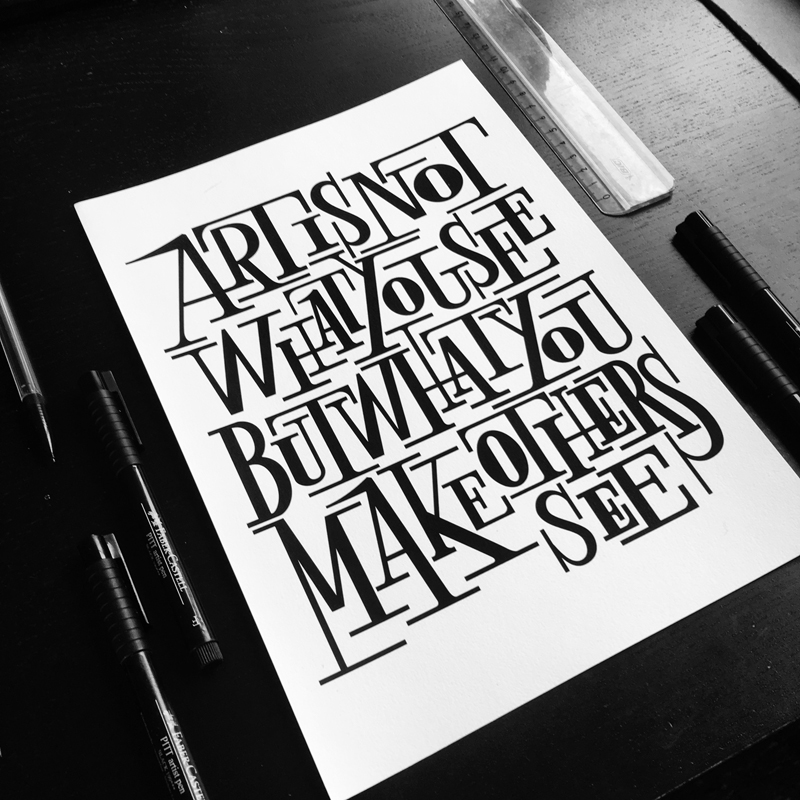 ART iS NOT
WHAT YOU SEE
BUT WHAT YOU
MAKE OTHERS
SEE
FABER-CASTELL
PITT artist pen
FABER-CASTELL
PITT artist pen